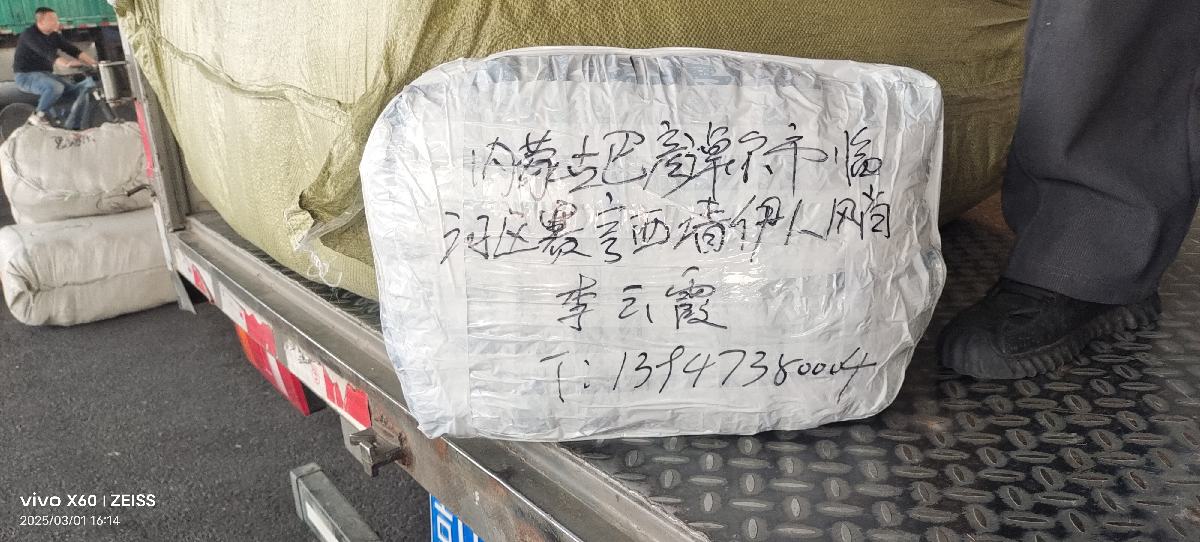 内蒙古巴彦淖尔市临
河区農亨西墙伊人风尚
李云霞
T: 13947380004
vivo X60 | ZEISS
2025/03/01 16:14